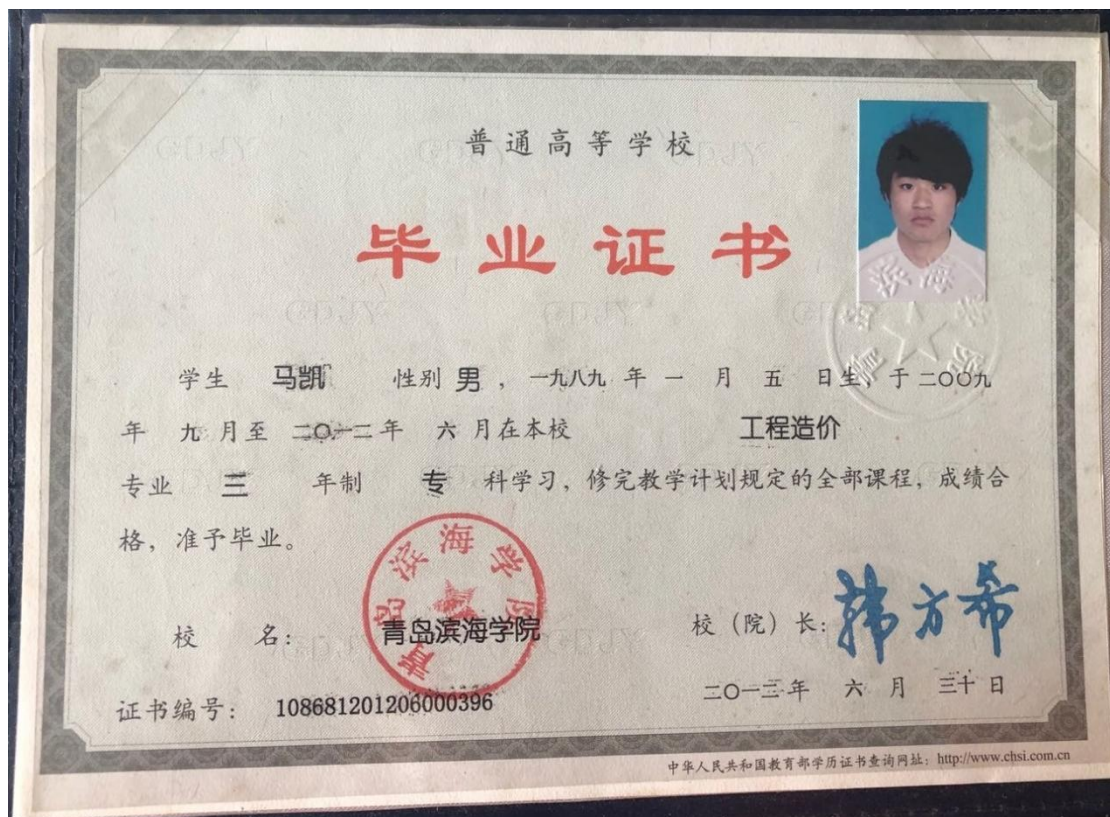 普通高等学校
毕业证书
学生 马凯 性别 男 ，一九八九 年 一 月 五 日生，于 二〇〇九
年 九 月至 二〇一二 年 六 月在本校 工程造价
专业 三 年制 专 科学习，修完教学计划规定的全部课程，成绩合
格，准予毕业。
青岛滨海学院
校 名： 青岛滨海学院
校（院）长： 韩方希
证书编号： 108681201206000396
二〇一二年 六 月 三十 日
中华人民共和国教育部学历证书查询网址：http://www.chsi.com.cn